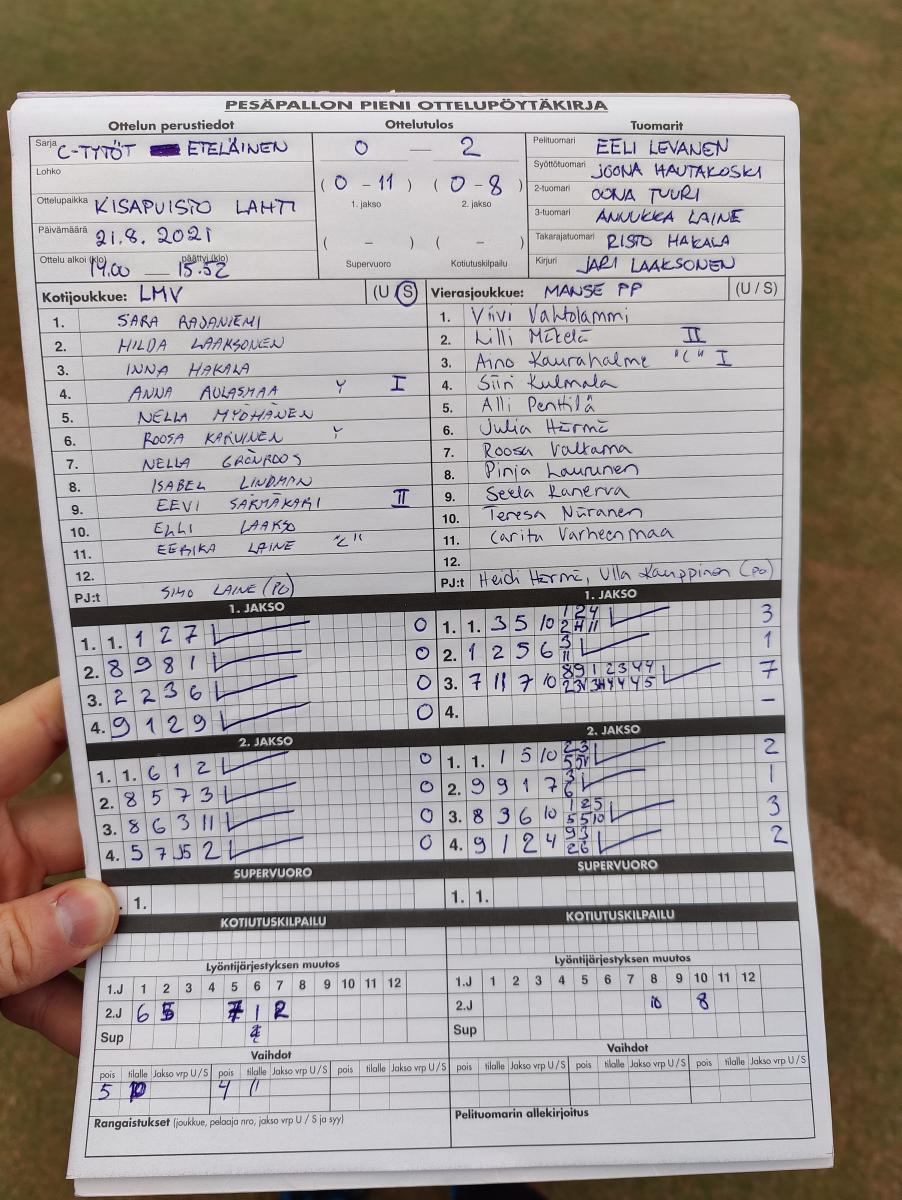 PESÄPALLON PIENI OTTELUPÖYTÄKIRJA
Ottelun perustiedot Ottelutulos Tuomarit
Sarja C-TYTÖT ETELÄINEN
Lohko
Ottelupaikka KISAPUISTO LAHTI
Päivämäärä 21.8. 2021
Ottelu alkoi (klo) päättyi (klo)
14.00 — 15.52
0 — 2
( 0 - 11 ) ( 0 - 8 )
1. jakso 2. jakso
( - ) ( - )
Supervuoro Kotiutuskilpailu
Pelituomari EELI LEVANEN
Syöttötuomari JOONA HAUTAKOSKI
2-tuomari OONA TUURI
3-tuomari ANNUKKA LAINE
Takarajatuomari RISTO HAKALA
Kirjuri JARI LAAKSONEN
Kotijoukkue: LMV (U S)
1. SARA RAJANIEMI
2. HILDA LAAKSONEN
3. INNA HAKALA
4. ANNA AULASMAA Y I
5. NELLA MYÖHÄNEN
6. ROOSA KARVINEN Y
7. NELLA GRÖNROOS
8. ISABEL LINDMAN
9. EEVI SÄRMÄKARI II
10. ELLI LAAKSO
11. EERIKA LAINE "C"
12.
PJ:t SIMO LAINE (PO)
Vierasjoukkue: MANSE PP (U / S)
1. Viivi Vahtolammi
2. Lilli Mäkelä II
3. Aino Kaurahalme "C" I
4. Siiri Kulmala
5. Alli Penttilä
6. Julia Härmä
7. Roosa Valtama
8. Pinja Laurunen
9. Seela Kanerva
10. Teresa Niiranen
11. Carita Varheenmaa
12.
PJ:t Heidi Härmä, Ulla Kauppinen (PO)
1. JAKSO
1. 1. 1 2 7 0
2. 8 9 8 1 0
3. 2 2 3 6 0
4. 9 1 2 9 0
1. JAKSO
1. 1. 3 5 10 3
2. 1 2 5 6 3 11 1
3. 7 11 7 10 7
4. –
2. JAKSO
1. 1. 6 1 2 0
2. 8 5 7 3 0
3. 8 6 3 11 0
4. 5 7 2 0
2. JAKSO
1. 1. 1 5 10 2
2. 9 9 1 7 3 6 1
3. 8 3 6 10 1 2 5 5 5 10 3
4. 9 1 2 4 9 3 2 6 2
SUPERVUORO
1.
SUPERVUORO
1. 1.
KOTIUTUSKILPAILU
KOTIUTUSKILPAILU
Lyöntijärjestyksen muutos
1.J 1 2 3 4 5 6 7 8 9 10 11 12
2.J 6 5 7 1 2
Sup
Lyöntijärjestyksen muutos
1.J 1 2 3 4 5 6 7 8 9 10 11 12
2.J 10 8
Sup
Vaihdot
pois tilalle Jakso vrp U / S pois tilalle Jakso vrp U / S pois tilalle Jakso vrp U / S
5 10 4 11
Vaihdot
pois tilalle Jakso vrp U / S pois tilalle Jakso vrp U / S pois tilalle Jakso vrp U / S
Rangaistukset (joukkue, pelaaja nro, jakso vrp U / S ja syy)
Pelituomarin allekirjoitus